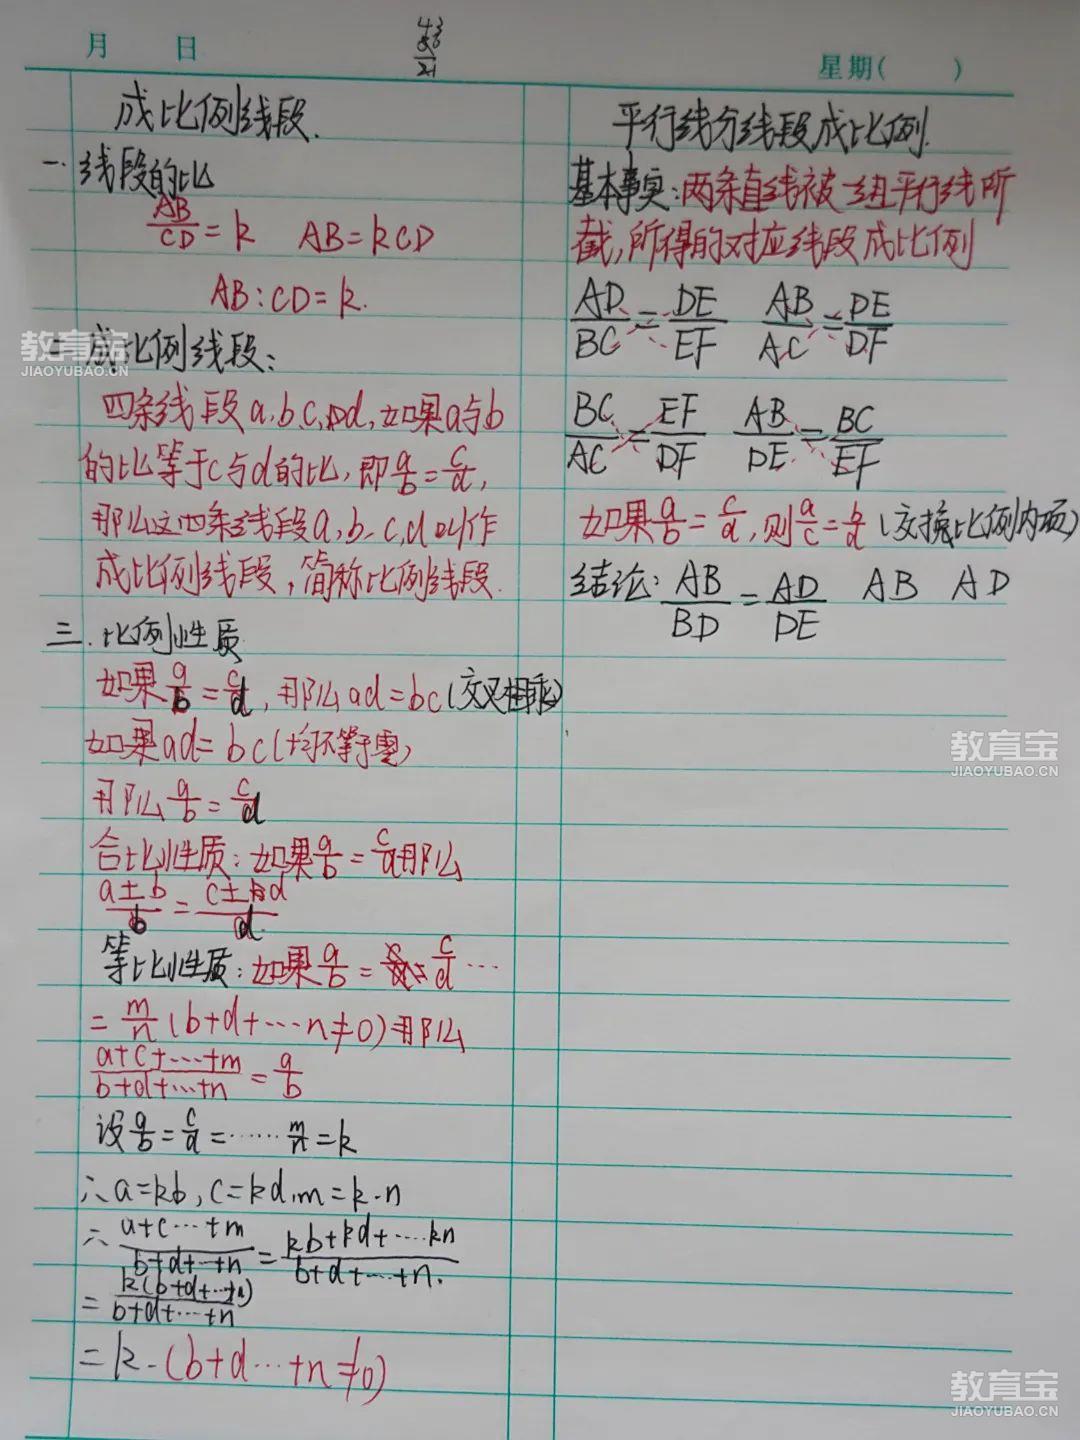 月 日
星期( )
成比例线段.
一.线段的比
AB/CD=k AB=kCD
AB:CD=k.
成比例线段:
四条线段a,b,c,d,如果a与b
的比等于c与d的比,即a/b=c/d,
那么这四条线段a,b,c,d叫作
成比例线段,简称比例线段.
三.比例性质
如果a/b=c/d,那么ad=bc(交叉相乘)
如果ad=bc(均不等于零)
那么a/b=c/d
合比性质:如果a/b=c/d那么
a±b/b=c±d/d
等比性质:如果a/b=c/d…
=m/n(b+d+…n≠0)那么
a+c+…+m/b+d+…+n=a/b
设a/b=c/d=……m/n=k
∴a=kb,c=kd,m=k·n
∴a+c…+m/b+d+…+n=kb+kd+…kn/b+d+…+n.
=k(b+d+…+n)/b+d+…+n
=k.(b+d…+n≠0)
平行线分线段成比例.
基本事实:两条直线被一组平行线所
截,所得的对应线段成比例
AD/BC=DE/EF AB/AC=DE/DF
BC/AC=EF/DF AB/DE=BC/EF
如果a/b=c/d,则a/c=b/d(交换比例内项)
结论:AB/BD=AD/DE AB AD
教育宝
JIAOYUBAO.CN
教育宝
JIAOYUBAO.CN
教育宝
JIAOYUBAO.CN